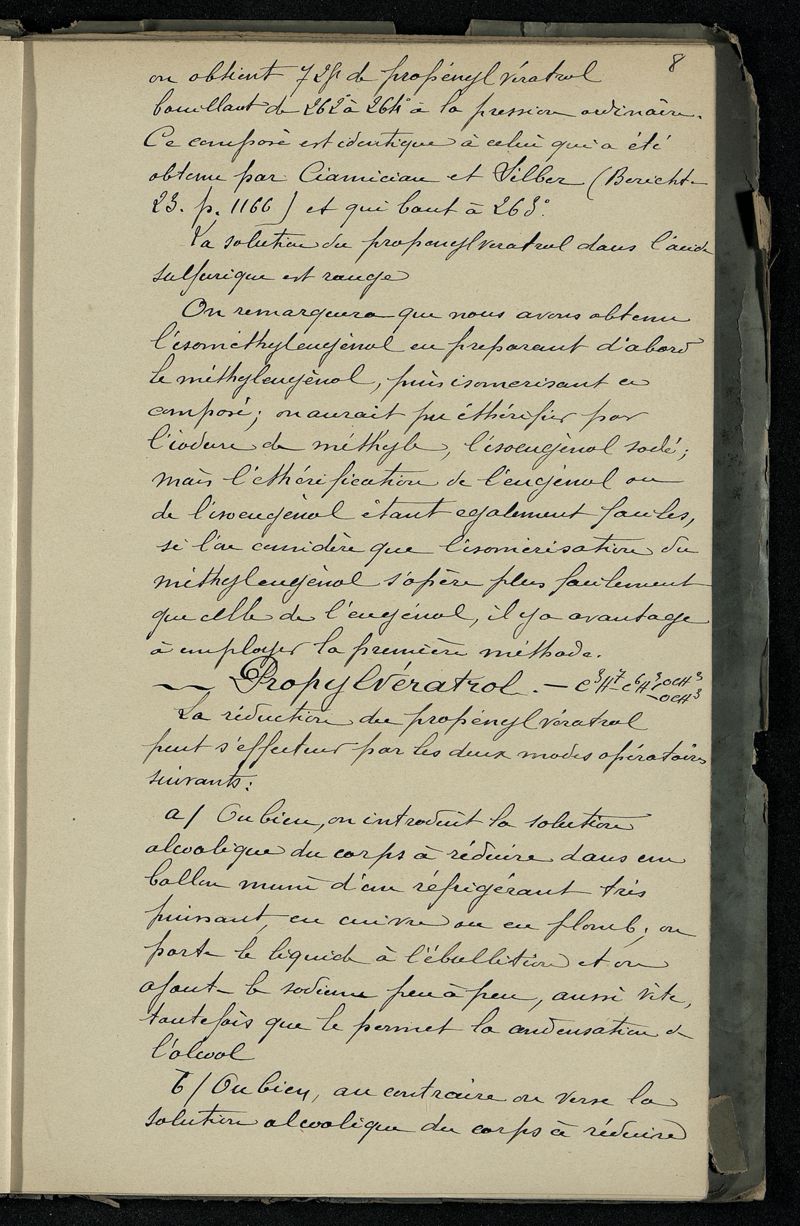 8
on obtient 72gr de propénylvératrol
bouillant de 262° à 264° à la pression ordinaire.
Ce composé est identique à celui qui a été
obtenu par Ciamician et Silber (Bericht
23. p. 1166) et qui bout à 263°.
La solution du propenylveratrol dans l'acide
sulfurique est rouge
On remarquera que nous avons obtenu
l'isométhyleugénol en preparant d'abord
le méthyleugènol, puis isomerisant ce
composé; on aurait pu éthérifier par
l'iodure de méthyle, l'isoeugènol sodé;
mais l'ethérification de l'eugénol ou
de l'isoeugènol étant egalement faciles,
si l'on considère que l'isomérisation du
méthyleugènol s'opère plus facilement
que celle de l'eugénol, il y a avantage
à employer la première méthode.
Propylvératrol. — C³H⁷-C⁶H³-OCH³
-OCH³
La réduction du propénylvératrol
peut s'effectuer par les deux modes opératoires
suivants:
a/ Ou bien, on introduit la solution
alcoolique du corps à réduire dans un
ballon muni d'un réfrigérant très
puissant, en cuivre ou en plomb; on
porte le liquide à l'ébullition et on
ajoute le sodium peu à peu, aussi vite,
toutefois que le permet la condensation de
l'alcool
b/ Ou bien, au contraire on verse la
solution alcoolique du corps à réduire